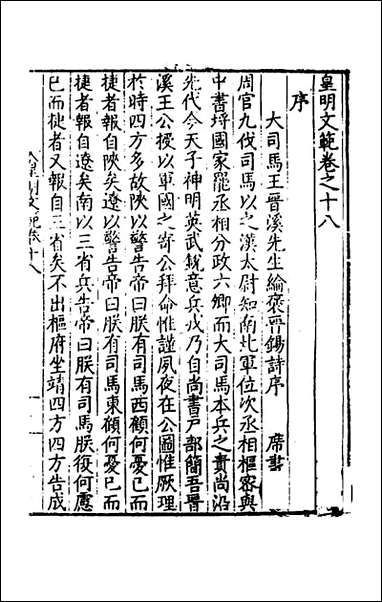 皇明文範卷之十八
序
大司馬王晉溪先生綸褒晉錫詩序 席書
周官九伐司馬以之漢太尉知南北軍位次丞相樞密與
中書埒國家罷丞相分政六卿而大司馬本兵之責尚沿
先代今天子神明英武銳意兵戎乃自尚書戸部簡吾晉
溪王公授以軍國之寄公拜命惟謹夙夜在公圖惟厥理
於時四方多故陜以警告帝曰朕有司馬西顧何憂已而
捷者報自陜矣遼以警告帝曰朕有司馬東顧何憂已而
捷者報自遼矣南以三省兵告帝曰朕有司馬朕復何慮
已而捷者又報自三省矣不出樞府坐靖四方四方告成
皇明文範卷十八